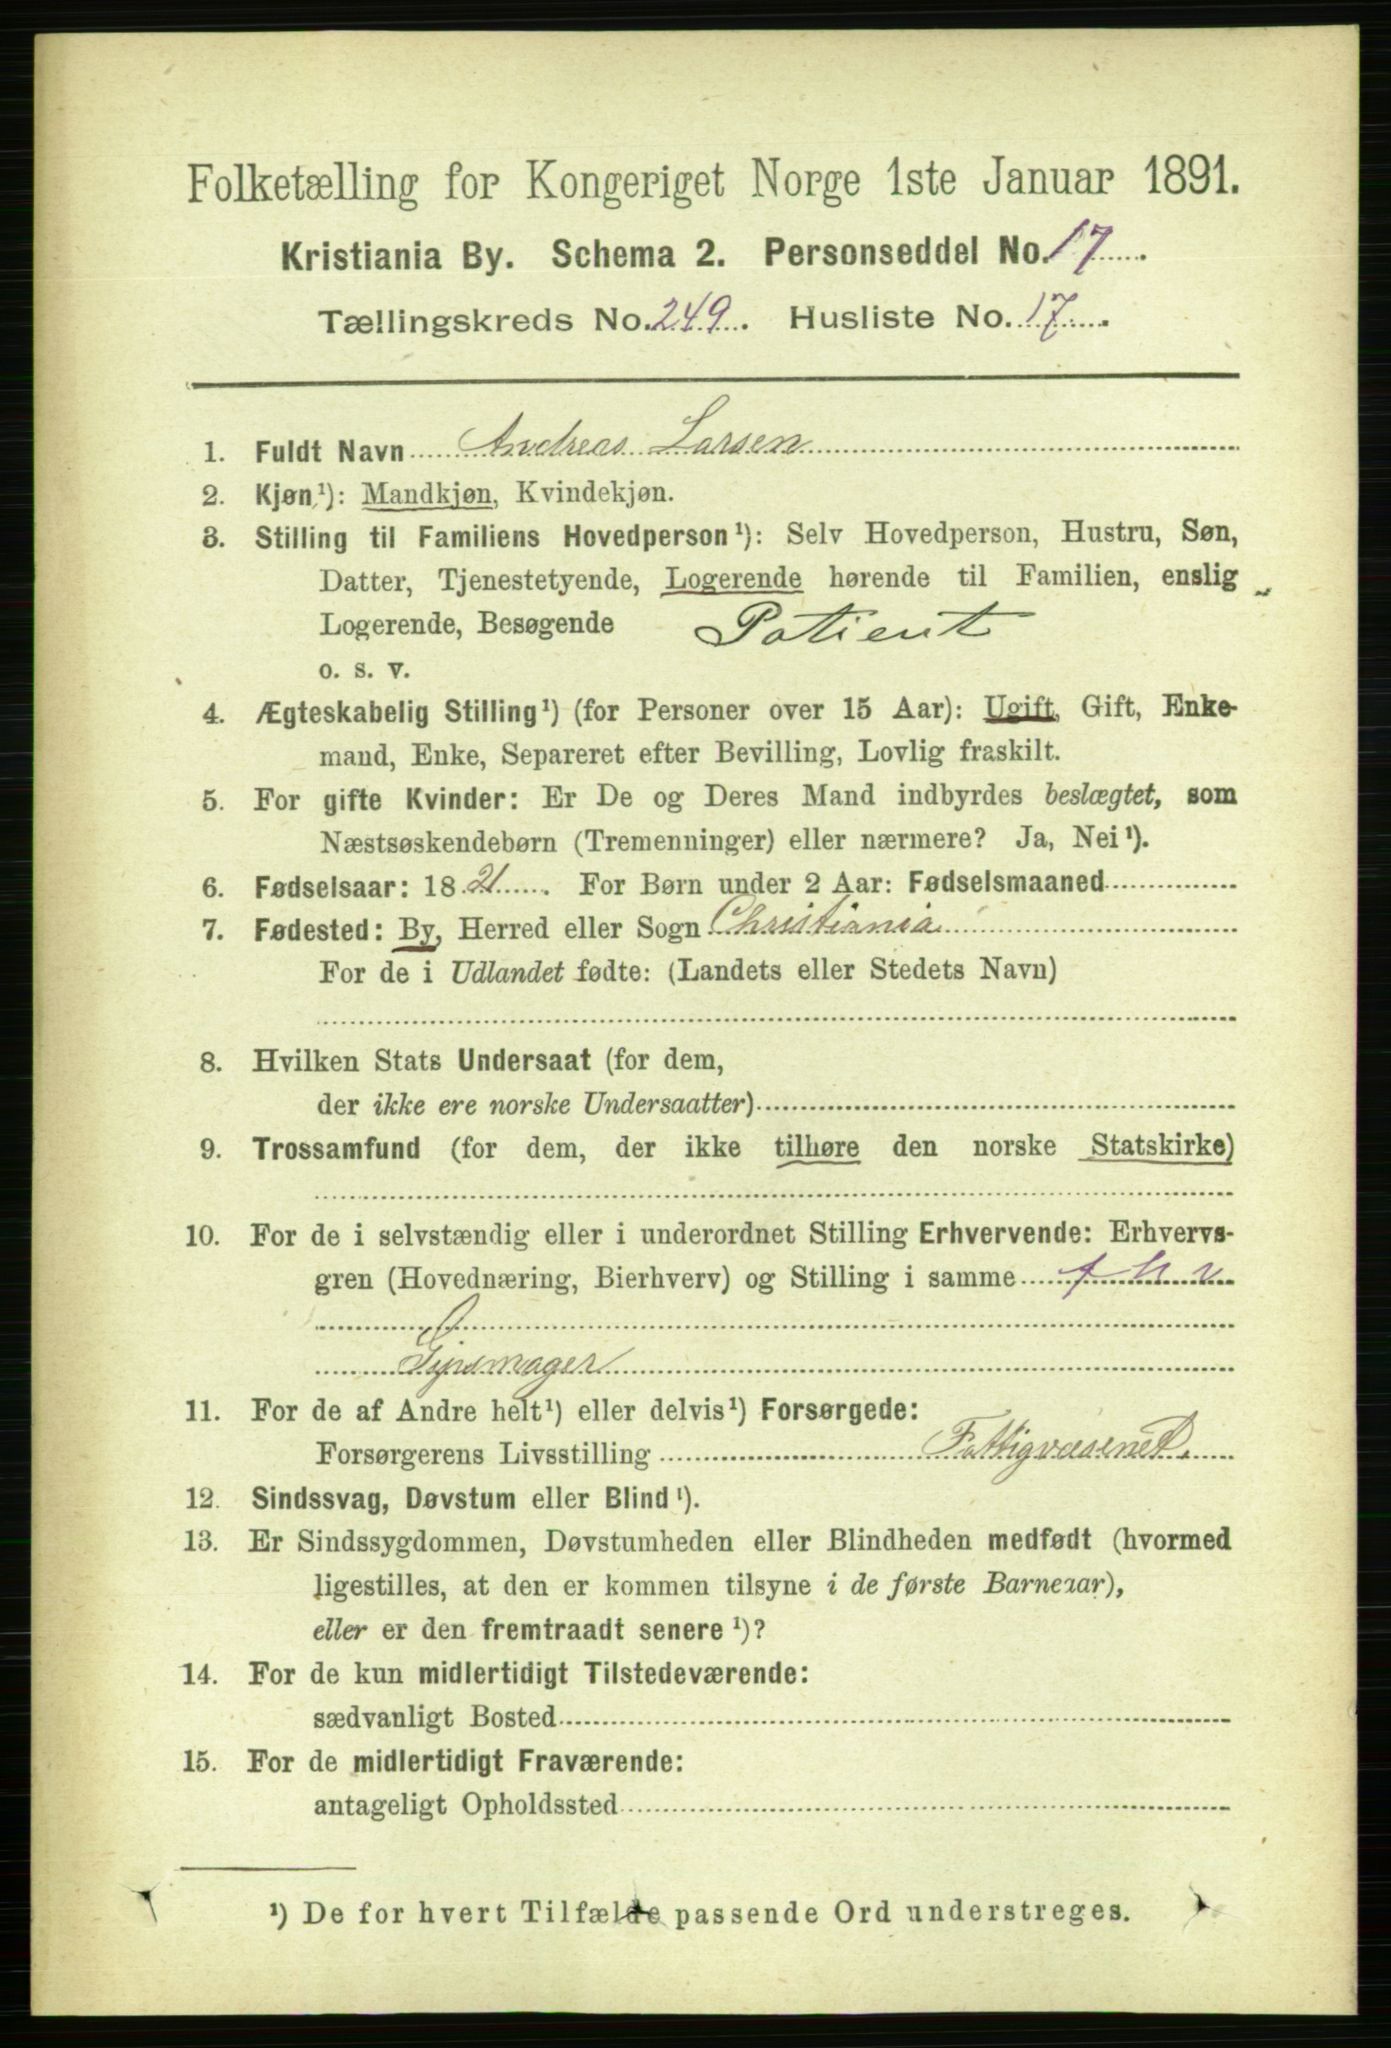 Folketælling for Kongeriget Norge 1ste Januar 1891.
Kristiania By. Schema 2. Personseddel No. 17
Tællingskreds No. 249. Husliste No. 17.
1. Fuldt Navn Andreas Larsen
2. Kjøn¹): Mandkjøn, Kvindekjøn.
3. Stilling til Familiens Hovedperson¹): Selv Hovedperson, Hustru, Søn,
Datter, Tjenestetyende, Logerende hørende til Familien, enslig
Logerende, Besøgende Patient
o. s. v.
4. Ægteskabelig Stilling¹) (for Personer over 15 Aar): Ugift, Gift, Enke-
mand, Enke, Separeret efter Bevilling, Lovlig fraskilt.
5. For gifte Kvinder: Er De og Deres Mand indbyrdes beslægtet, som
Næstsøskendebørn (Tremenninger) eller nærmere? Ja, Nei¹).
6. Fødselsaar: 1821. For Børn under 2 Aar: Fødselsmaaned
7. Fødested: By, Herred eller Sogn Christiania
For de i Udlandet fødte: (Landets eller Stedets Navn)
8. Hvilken Stats Undersaat (for dem,
der ikke ere norske Undersaatter)
9. Trossamfund (for dem, der ikke tilhøre den norske Statskirke)
10. For de i selvstændig eller i underordnet Stilling Erhvervende: Erhvervs-
gren (Hovednæring, Bierhverv) og Stilling i samme
Gipsmager
11. For de af Andre helt¹) eller delvis¹) Forsørgede:
Forsørgerens Livsstilling Fattigvæsenet.
12. Sindssvag, Døvstum eller Blind¹).
13. Er Sindssygdommen, Døvstumheden eller Blindheden medfødt (hvormed
ligestilles, at den er kommen tilsyne i de første Barneaar),
eller er den fremtraadt senere¹)?
14. For de kun midlertidigt Tilstedeværende:
sædvanligt Bosted
15. For de midlertidigt Fraværende:
antageligt Opholdssted
¹) De for hvert Tilfælde passende Ord understreges.